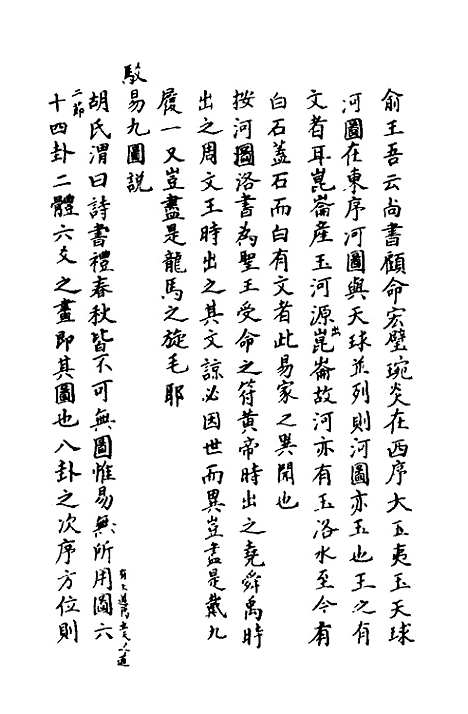 俞王吾云尚書顧命宏璧琬炎在西序大玉夷玉天球
河圖在東序河圖與天球並列則河圖亦玉也玉之有
文者耳崑崙產玉河源出崑崙故河亦有玉洛水至今有
白石蓋石而白有文者此易家之異聞也
按河圖洛書為聖王受命之符黃帝時出之堯舜禹時
出之周文王時出之其文諒必因世而異豈盡是戴九
履一又豈盡是龍馬之旋毛耶
駁易九圖説
胡氏渭曰詩書禮春秋皆不可無圖惟易無所用圖六
二節
十四卦二體六爻之畫即其圖也八卦之次序方位則